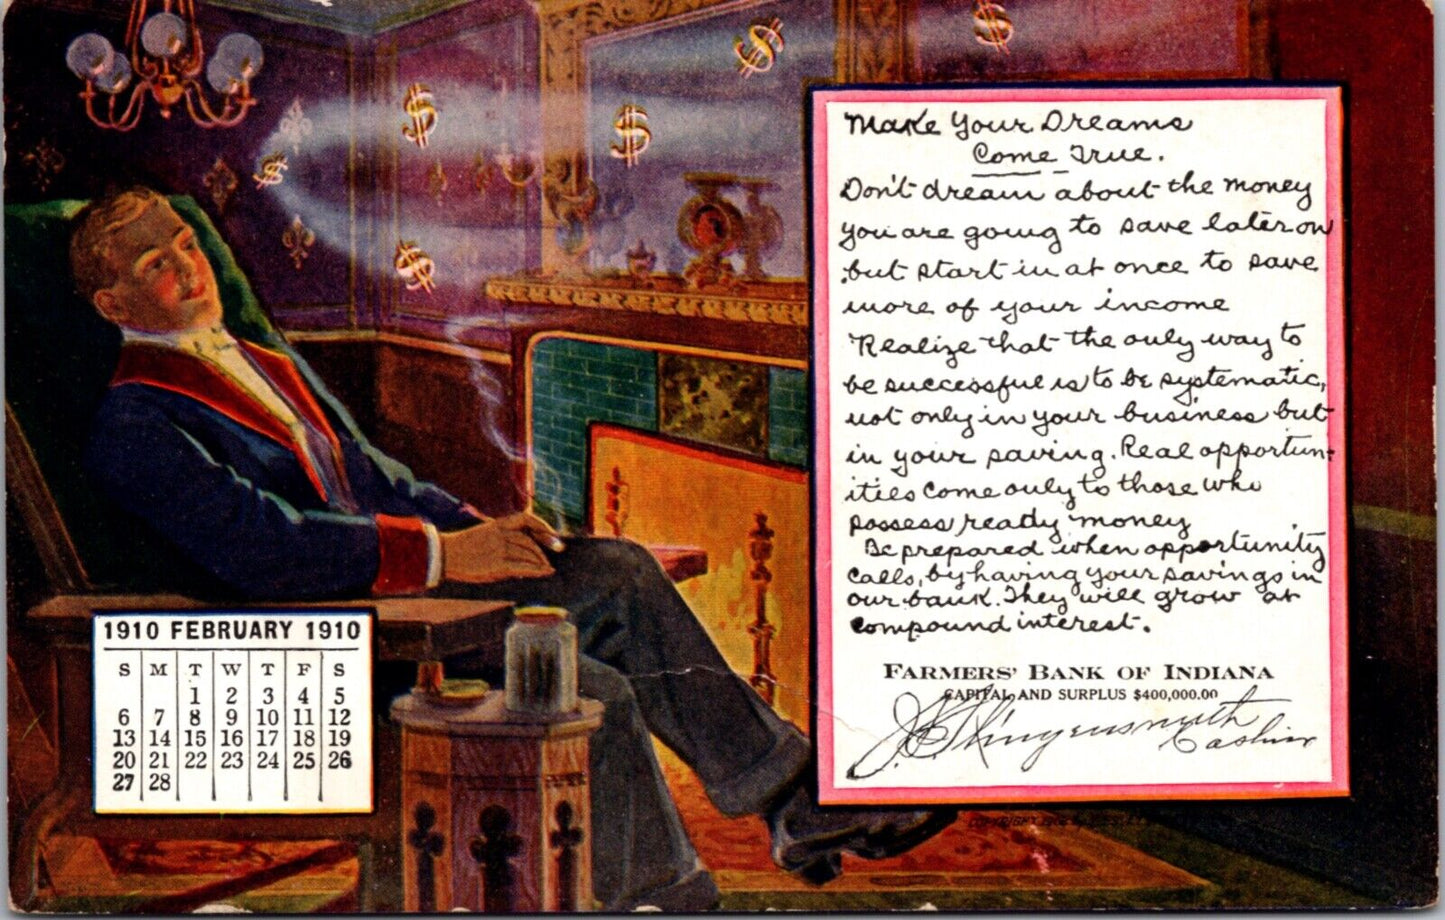 Make Your Dreams
Come True.
Don't dream about the money
you are going to save later on
but start in at once to save
more of your income
Realize that the only way to
be successful is to be systematic,
not only in your business but
in your saving. Real opportun-
ities come only to those who
possess ready money
Be prepared when opportunity
calls, by having your savings in
our bank. They will grow at
compound interest.
FARMERS' BANK OF INDIANA
CAPITAL AND SURPLUS $400,000.00
Cashier
1910 FEBRUARY 1910
S M T W T F S
1 2 3 4 5
6 7 8 9 10 11 12
13 14 15 16 17 18 19
20 21 22 23 24 25 26
27 28
$
$
$
$
$
$